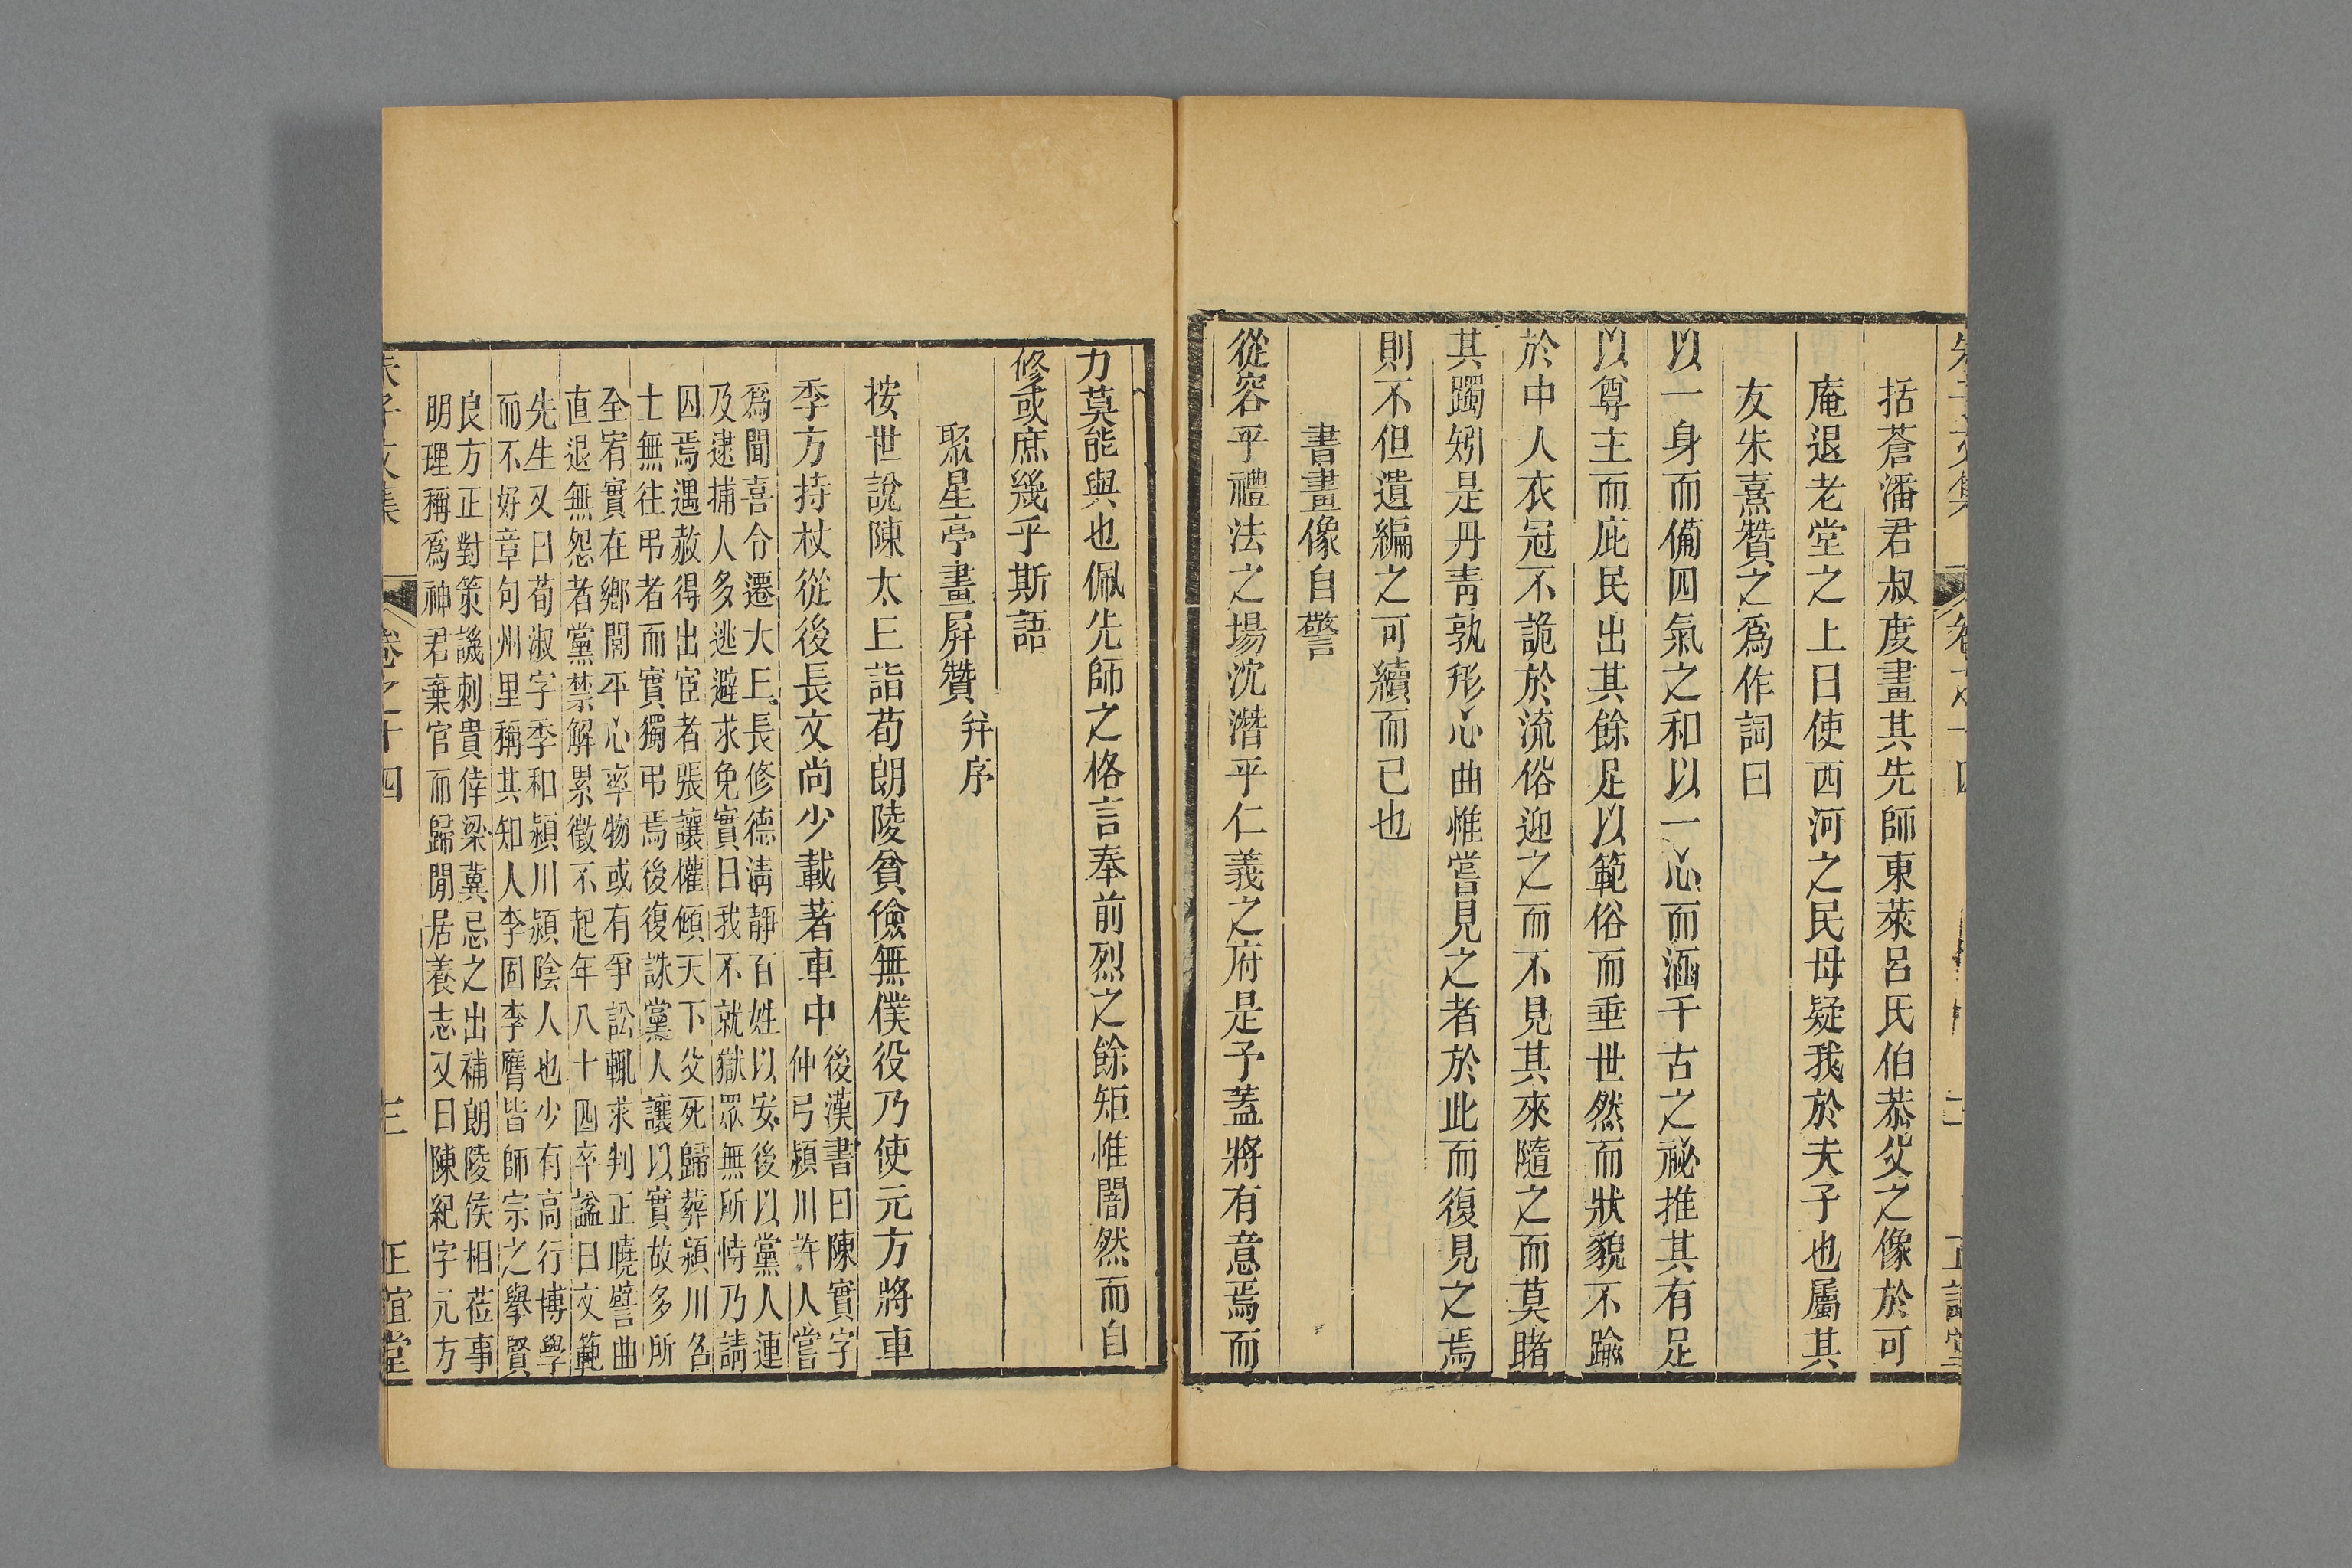 括蒼潘君叔度畫其先師東萊呂氏伯恭父之像於可
庵退老堂之上曰使西河之民毋疑我於夫子也屬其
友朱熹贊之爲作詞曰
以一身而備四氣之和以一心而涵千古之祕推其有足
以尊主而庇民出其餘足以範俗而垂世然而狀貌不踰
於中人衣冠不詭於流俗迎之而不見其來隨之而莫睹
其躅矧是丹青孰形心曲惟嘗見之者於此而復見之焉
則不但遺編之可續而已也
書畫像自警
從容乎禮法之場沈潛乎仁義之府是予蓋將有意焉而
力莫能與也佩先師之格言奉前烈之餘矩惟闇然而自
修或庶幾乎斯語
聚星亭畫屏贊并序
按世說陳太丘詣荀朗陵貧儉無僕役乃使元方將車
季方持杖從後長文尚少載著車中後漢書曰陳寔字
仲弓潁川許人嘗
爲聞喜令遷大丘長修德清靜百姓以安後以黨人連
及逮捕人多逃避求免寔曰我不就獄眾無所恃乃請
囚焉遇赦得出宦者張讓權傾天下父死歸葬潁川名
士無往弔者而寔獨弔焉後復誅黨人讓以寔故多所
全宥寔在鄉閭平心率物或有爭訟輒求判正曉譬曲
直退無怨者黨禁解累徵不起年八十四卒諡曰文範
先生又曰荀淑字季和潁川潁陰人也少有高行博學
而不好章句州里稱其知人李固李膺皆師宗之舉賢
良方正對策譏刺貴倖梁冀忌之出補朗陵侯相莅事
明理稱爲神君棄官而歸閒居養志又曰陳紀字元方
朱子文集 卷之十四 三 正誼堂